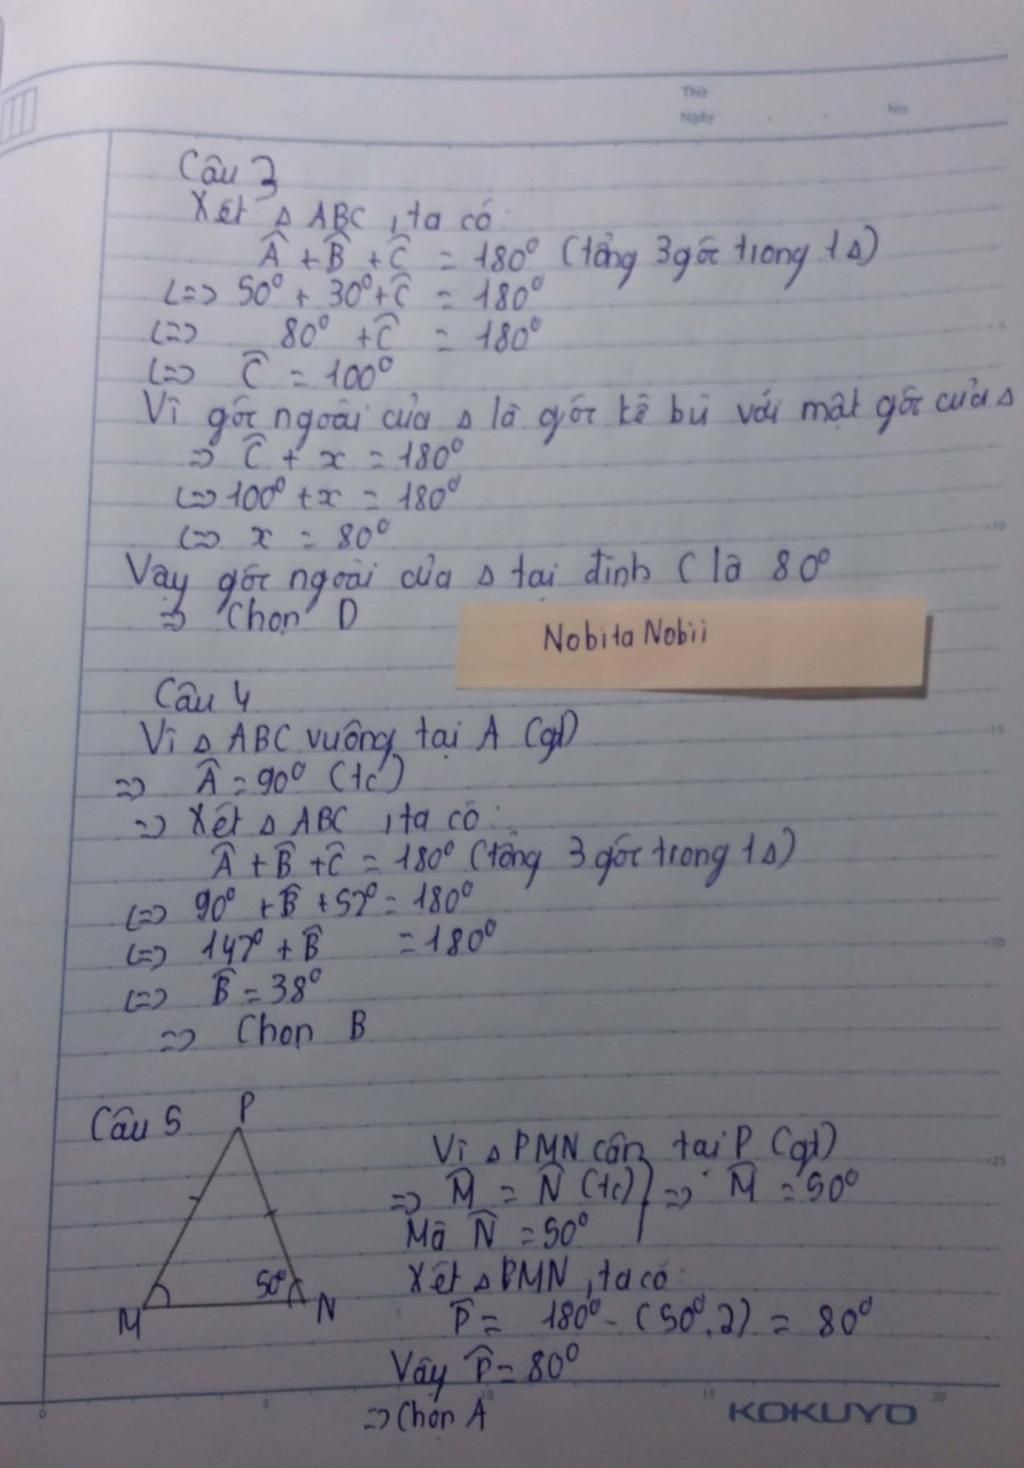 Thứ
Ngày
No
Câu 3
Xét Δ ABC, ta có:
Â + B̂ + Ĉ = 180° (tổng 3 góc trong 1 Δ)
(=) 50° + 30° + Ĉ = 180°
(=) 80° + Ĉ = 180°
(=) Ĉ = 100°
Vì góc ngoài của Δ là góc kề bù với một góc của Δ
=> Ĉ + x = 180°
(=) 100° + x = 180°
(=) x = 80°
Vậy góc ngoài của Δ tại đỉnh C là 80°
=> Chọn D
Nobita Nobii
Câu 4
Vì Δ ABC vuông tại A (gt)
=> Â = 90° (tc)
=> Xét Δ ABC, ta có:
Â + B̂ + Ĉ = 180° (tổng 3 góc trong 1 Δ)
(=) 90° + B̂ + 57° = 180°
(=) 147° + B̂ = 180°
(=) B̂ = 38°
=> Chọn B
Câu 5
P
M
50°
N
Vì Δ PMN cân tại P (gt)
=> M̂ = N̂ (tc) } => M̂ = 50°
Mà N̂ = 50°
Xét Δ PMN, ta có:
P̂ = 180° - (50°.2) = 80°
Vậy P̂ = 80°
=> Chọn A
5
10
15
20
25
0 5 10 15 20
KOKUYO